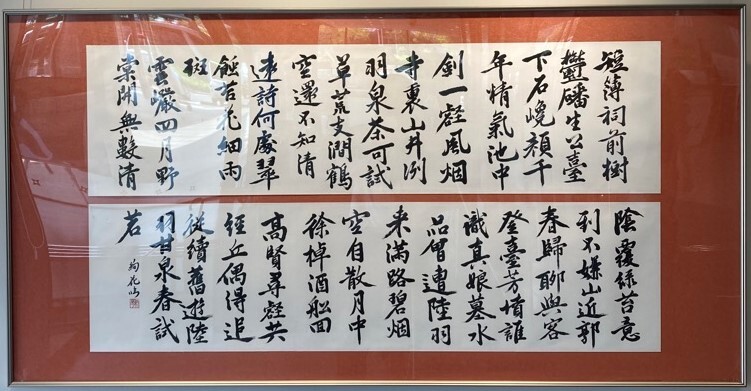 短簿祠前樹
鬱蟠生公臺
下石巉顏千
年精氣池中
劍一壑風烟
寺裏山井冽
羽泉茶可試
草荒支澗鶴
空還不知清
遠詩何處翠
蝕苔花細雨
斑
雲巖四月野
棠開無數清
陰覆綠苔意
到不嫌山近郭
春歸聊與客
登臺芳墳誰
識真娘墓水
品曾遭陸羽
來滿路碧烟
空自散月中
徐棹酒船回
高賢尋壑共
經丘偶得追
從續舊遊陸
羽甘泉春試
茗